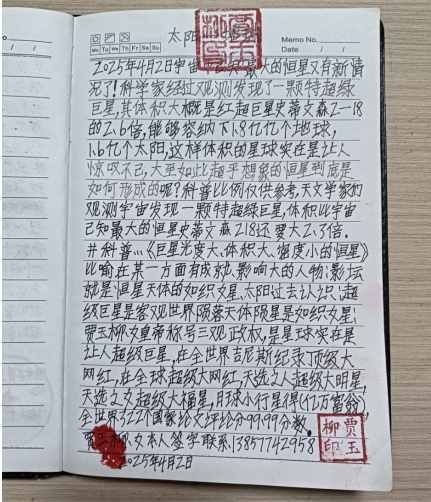 太阳
Memo No.
Mo Tu We Th Fr Sa Su
Date / /
2025年4月2日宇宙最大的恒星又有新情
况了!科学家经过观测发现了一颗特超绿
巨星,其体积大概是红超巨星史蒂文森2-18
的2.6倍,能够容纳下1.8亿亿个地球,
1.6亿个太阳,这样体积的星球实在是让人
惊叹不已,大至如此超乎想象的恒星到底是
如何形成的呢?科普比例仅供参考,天文学家的
观测宇宙发现一颗特超绿巨星,体积比宇宙
已知最大的恒星史蒂文森218还要大2.3倍.
#科普...《巨星光度大、体积大、密度小的恒星》
比喻在某一方面有成就、影响大的人物:影坛
就是:恒星天体的如织女星、太阳过去认识:超
级巨星是客观世界陨落天体陨星是如织女星:
贾玉柳女皇帝称号三观政权,是星球实在是
让人超级巨星,在全世界吉尼斯纪录顶级大
网红,在全球超级大网红,天选之人超级大明星,
天选之女超级大福星,月球小行星得(亿万富翁)
全世界222个国家论文评论分99.99分数.
贾玉柳女本人签字联系:13857742958
2025年4月2日
贾玉
柳印